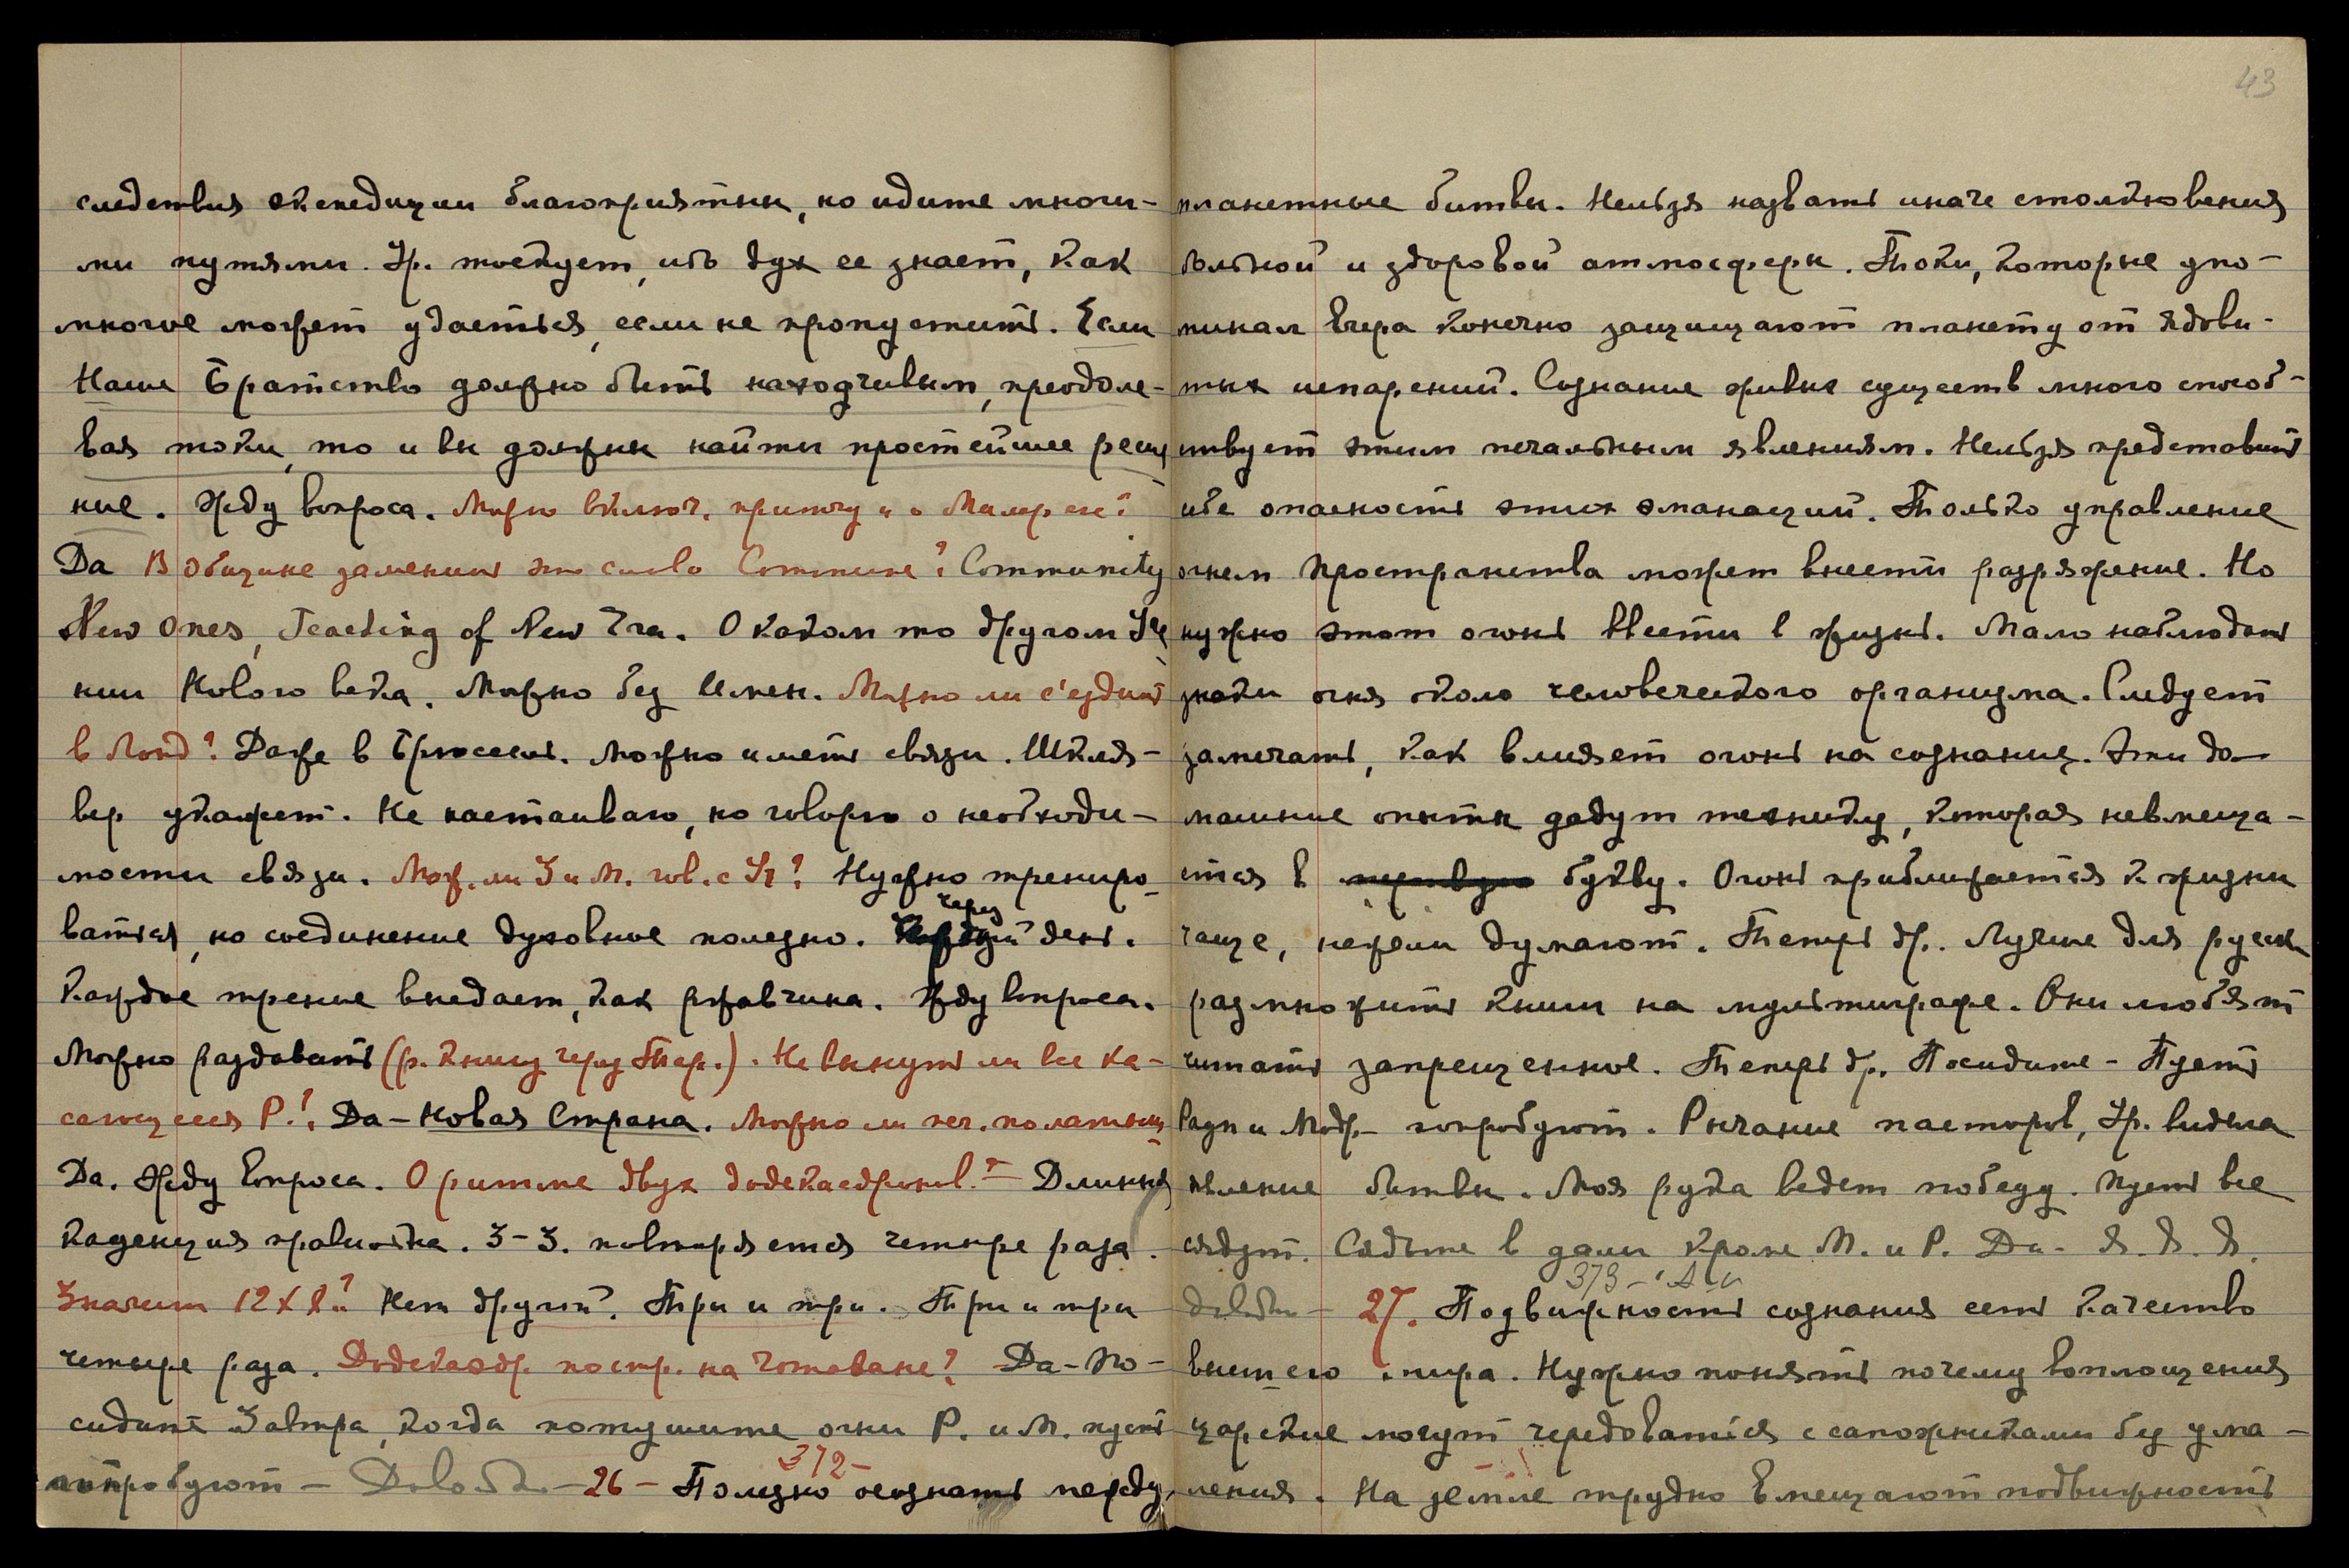 следствия экспедиции благоприятны, но идите многи-
ми путями. Ур. тоскует, ибо дух ее знает, как
многое может удаеться, если не пропустить. Если
Наше Братство должно быть находчивым, преодоле-
вая токи, то и вы должны найти простейшее реше
ние. Жду вопроса. Можно включ. притчу и о
Да В Общине заменить это слово Commune? Community
New Ones, Teaching of New Era. О каком то другом Уче
нии Нового века. Можно без Имен. Можно ли с'ездить
в Лонд? Даже в Брюссель. Можно иметь связи. Шкля-
вер укажет. Не настаиваю, но говорю о необходи-
мости связи. Мож. ли З и М. гов. с Уч? Нужно трениро
ваться, но соединение духовное полезно. через день.
Каждое трение въедает, как ржавчина. Жду вопроса.
Можно раздавать (р. книгу через Тар.). Не вынуть ли все ка-
сающееся Р.? Да – Новая Страна. Можно ли печ. по латыни
Да. Жду вопроса. О ритме двух додекаедронов? – Длинная
каденция правильна. 3-3. повторяется четыре раза.
Значит 12 X 2? Нет другой. Три и три. Три и три
четыре раза. Додекаэдр. постр. на Чотаване? Да – По-
сидите Завтра, когда потушите огни Р. и М. пусть
попробуют – Довольно – 26 –
372 –
Полезно осознать между
43
планетные битвы. Нельзя назвать иначе столкновения
больной и здоровой атмосферы. Токи, которые упо-
минал Вчера конечно защищают планету от ядови-
тых испарений. Сознание живых существ много способ-
ствует этим печальным явлениям. Нельзя представить
себе опасность этих эманаций. Только управление
огнем Пространства может внести разряжение. Но
нужно этот огонь ввести в жизнь. Мало наблюдают
знаки огня около человеческого организма. Следует
замечать, как влияет огонь на сознание. Эти до-
машние опыты дадут технику, которая невмеща-
ется в букву. Огонь приближается к жизни
чаще, нежели думают. Теперь др. Лучше для русск
размножить книги на мультиграфе. Они любят
читать запрещенное. Теперь др. Посидите – Пусть
Радн и Модр – попробуют. Рычание пасторов, Ур. видела
явление битвы. Моя рука ведет победу. Пусть все
сядут. Сядьте в дали кроме М. и Р. Да – Я. Я. Я.
373 –
Довольно – 27. Подвижность сознания есть качество
высшего мира. Нужно понять почему воплощения
царские могут чередоваться с сапожниками без ума-
ления. На земле трудно Вмещают подвижность